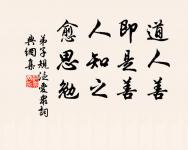 道人善
即是善
人知之
愈思勉
弟子規 泛愛眾詞
典網集